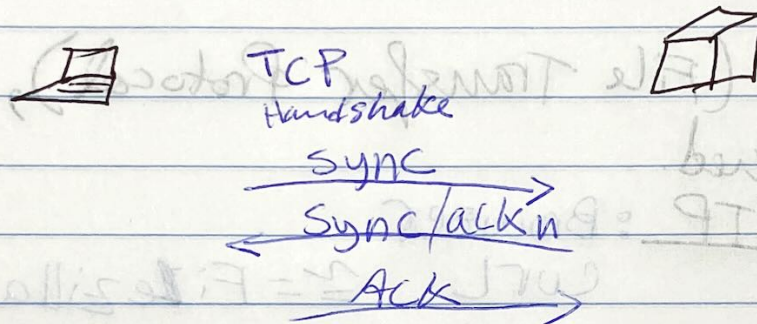 TCP
Handshake
Sync
Sync/ackn
Ack